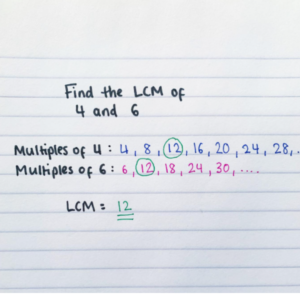 Find the LCM of
4 and 6
Multiples of 4 : 4, 8, 12, 16, 20, 24, 28, .
Multiples of 6 : 6, 12, 18, 24, 30, ....
LCM = 12